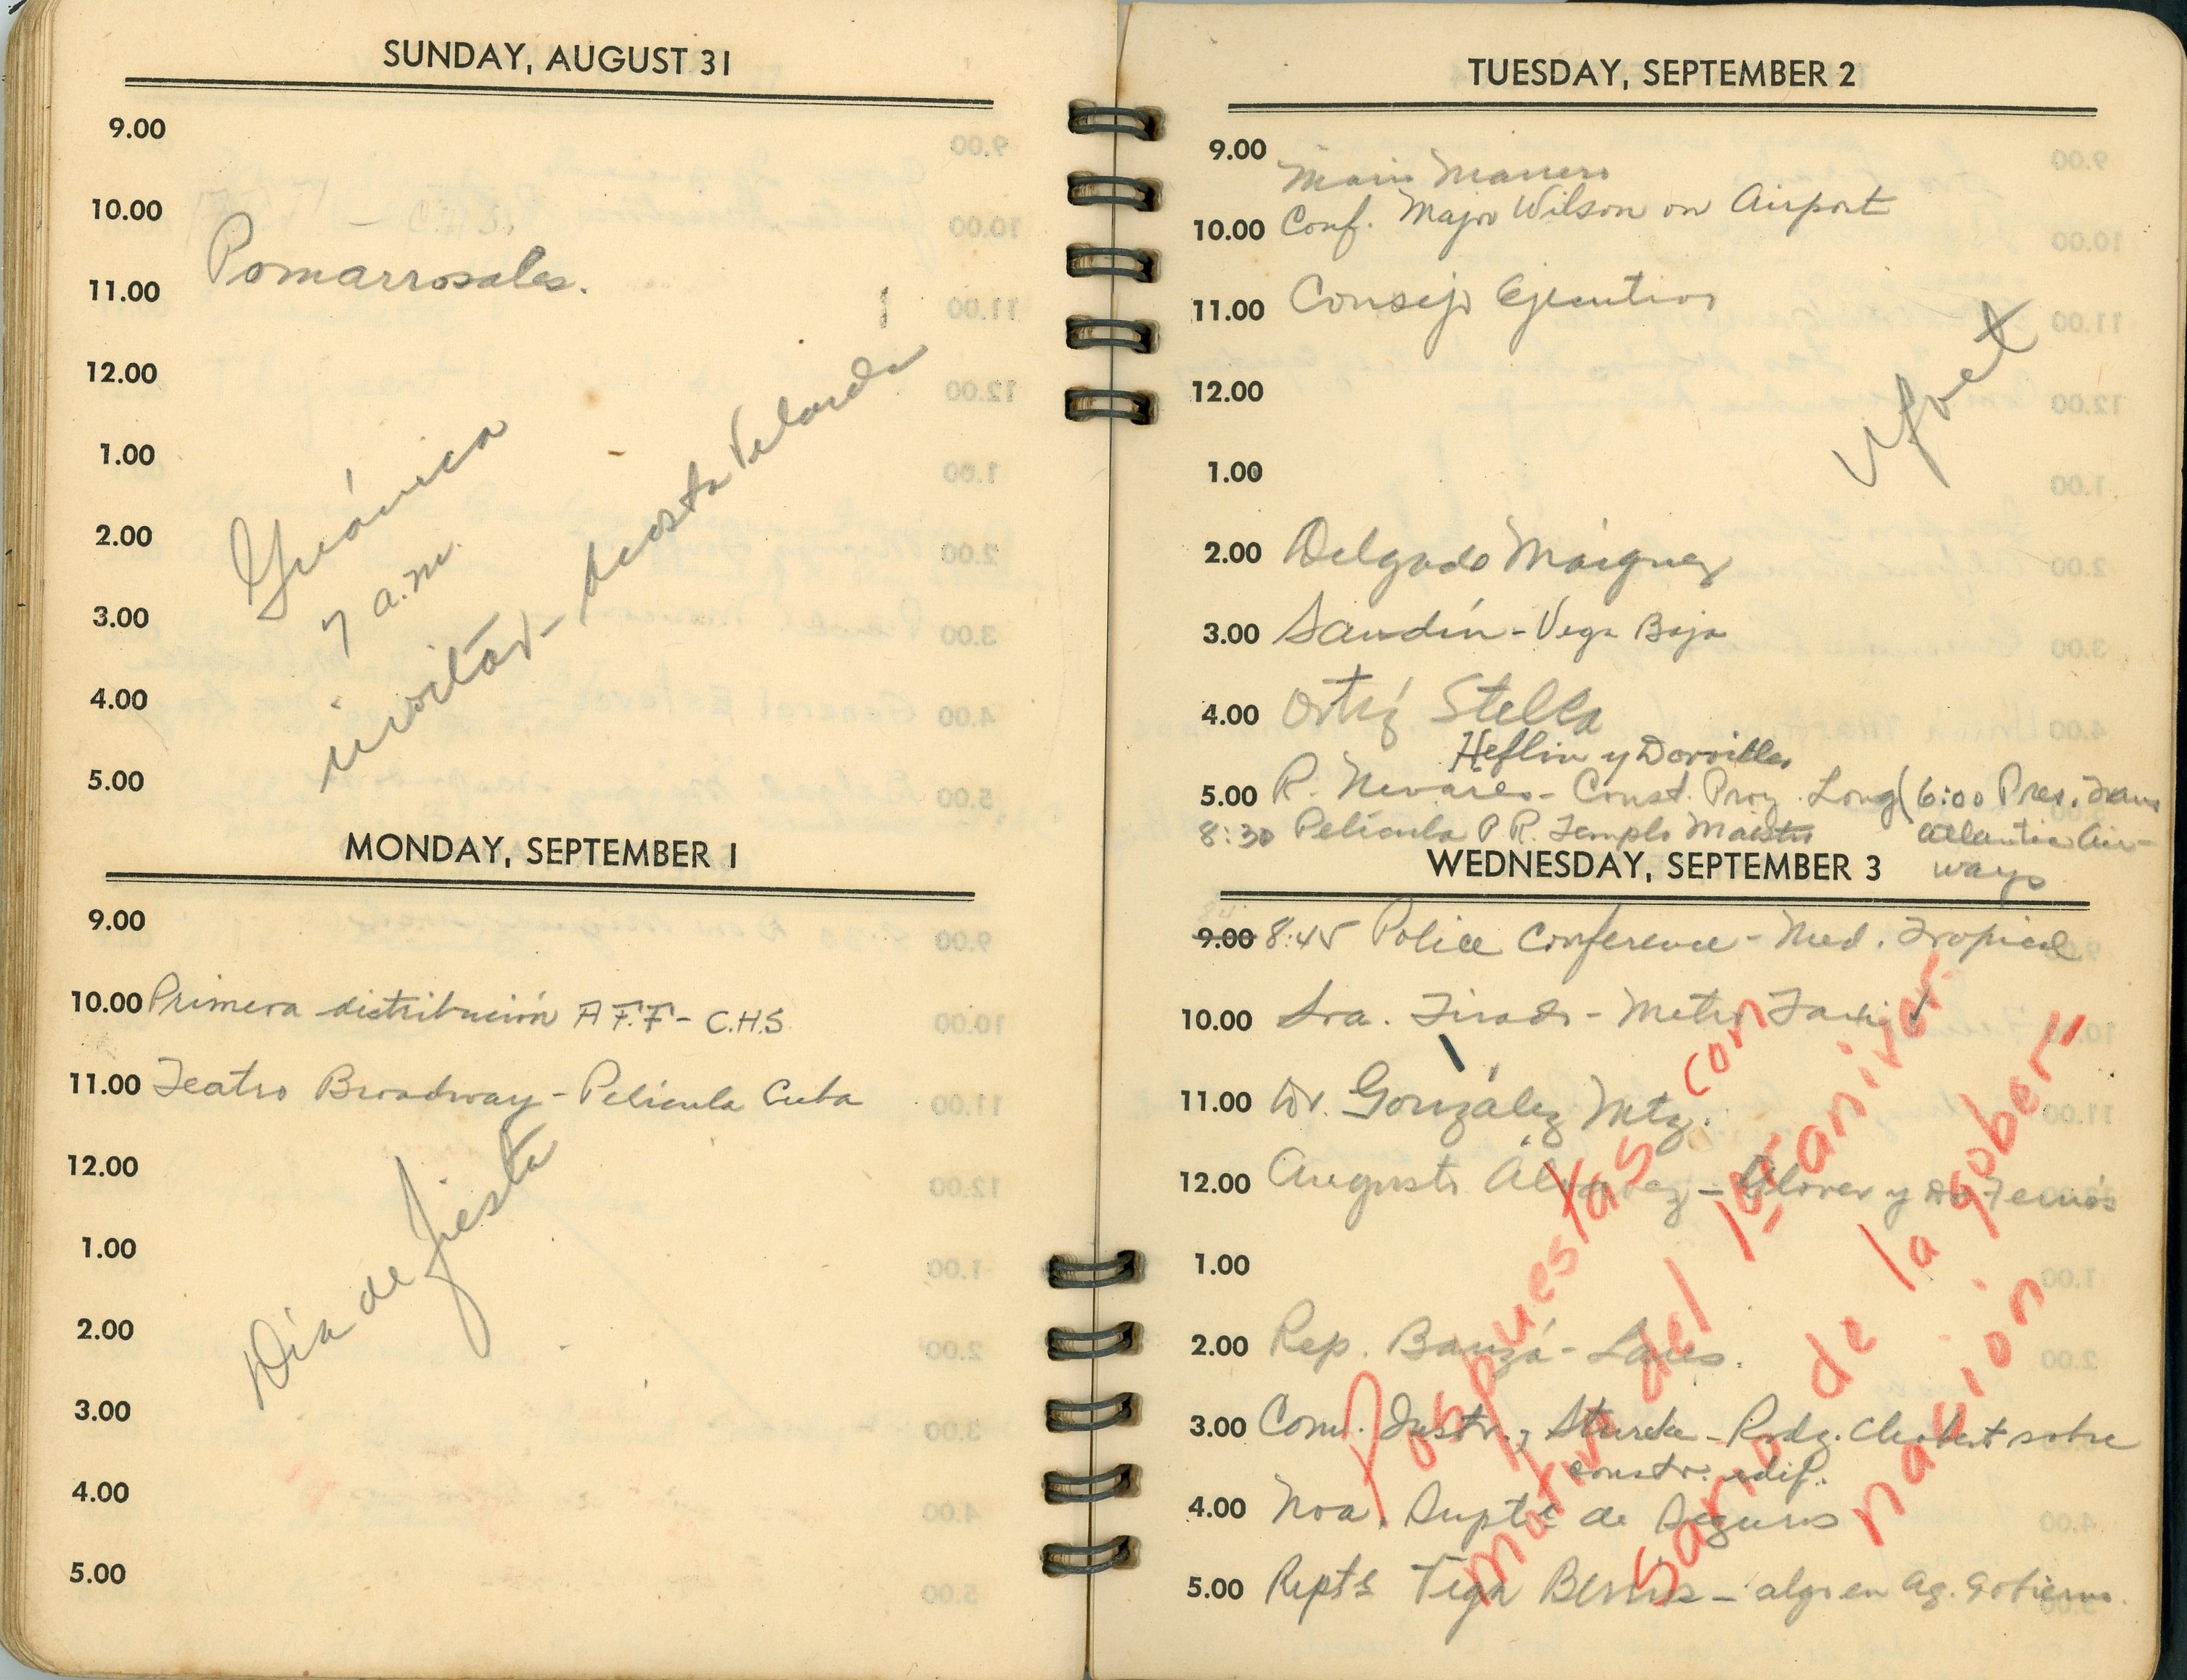 SUNDAY, AUGUST 31
9.00
10.00
Pomarrosales.
11.00
12.00
1.00
Guánica
2.00
7 a.m.
3.00
invitar - Acosta Velarde
4.00
5.00
MONDAY, SEPTEMBER 1
9.00
10.00 Primera distribución A.F.F - C.H.S.
11.00 Teatro Broadway - Película Cuba
12.00
1.00
Día de fiesta
2.00
3.00
4.00
5.00
TUESDAY, SEPTEMBER 2
9.00
10.00 Conf. Major Wilson on Airport
11.00 Consejo Ejecutivo
12.00
1.00
2.00 Delgado Márquez
3.00 Sandín - Vega Baja
4.00 Ortiz Stella
Heflin y
5.00 R. Nevares - Const. Proy. Long (6:00 Pres. Trans
8:30 Película P.R. Templo Maestro
atlantic Air-
ways
WEDNESDAY, SEPTEMBER 3
9.00 8:45 Police Conference - Med. Tropical
10.00 Sra. Tirado - Metro
11.00 Dr. González Mtz.
12.00 Augusto Álvarez - Glover y
1.00
2.00 Rep. Banzá - Lares.
3.00 Com. Instr., - Rodz. sobre
constr. edif.
4.00 Noa. Supte de Seguros
5.00 Repte Vega Berríos - algo en Ag. Gobierno.
Pospuestas con
motivo del 1er aniver
sario de la gober
nación